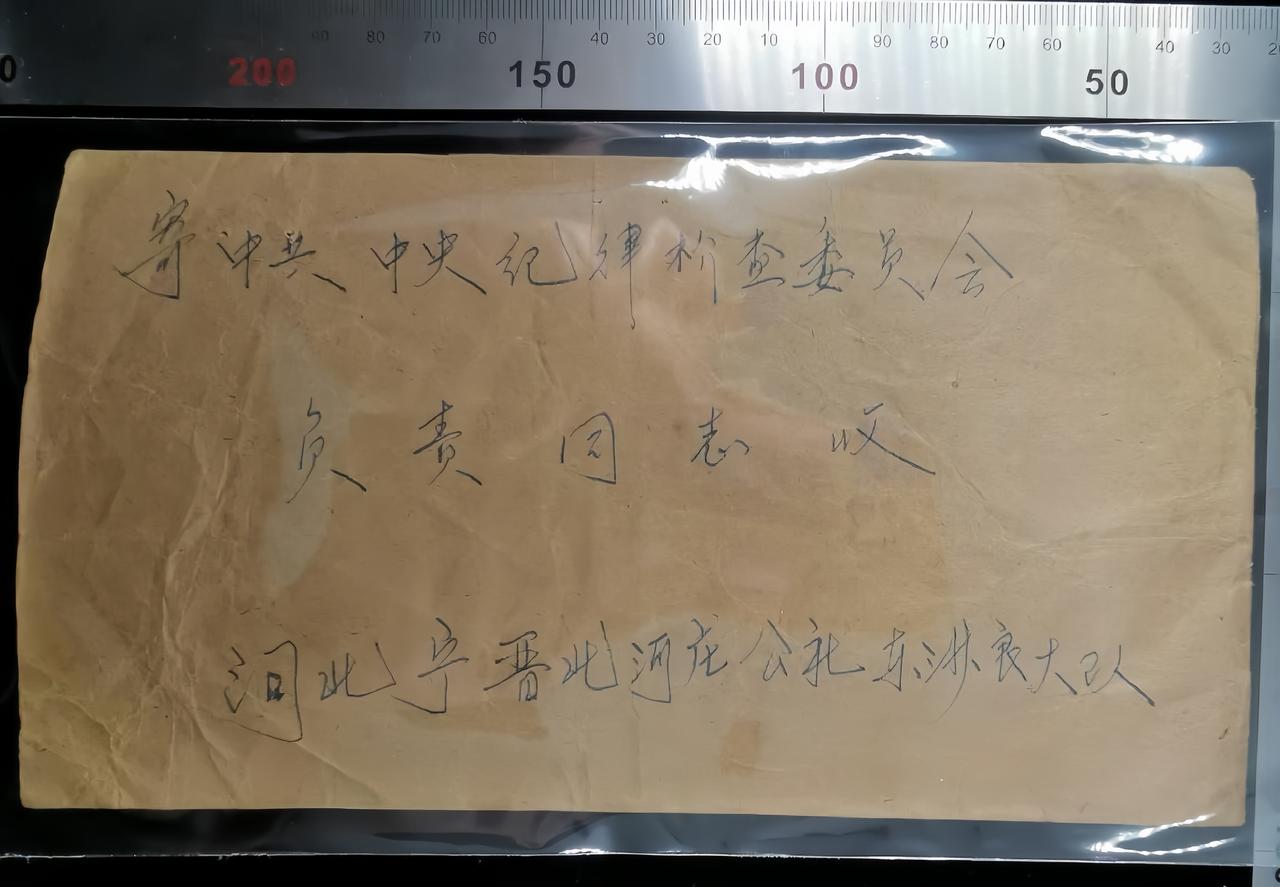 0 200 90 80 70 60 150 40 30 20 10 100 90 80 70 60 50 40 30
寄中共中央纪律检查委员会
负责同志收
河北宁晋北河庄公社东洨良大队